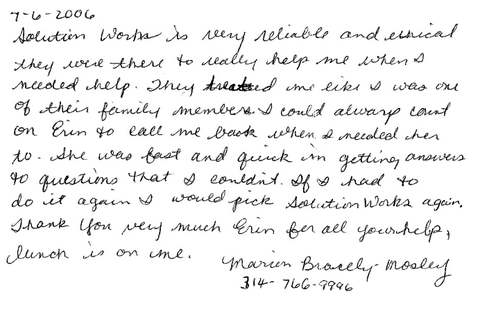 7-6-2006
Solution Works is very reliable and ethical
they were there to really help me when I
needed help. They treated me like I was one
of their family members. I could always count
on Erin to call me back when I needed her
to. She was fast and quick in getting answers
to questions that I couldn't. If I had to
do it again I would pick Solution Works again.
Thank You very much Erin for all your help,
lunch is on me.
Marion Bracely-Mosley
314-766-9996